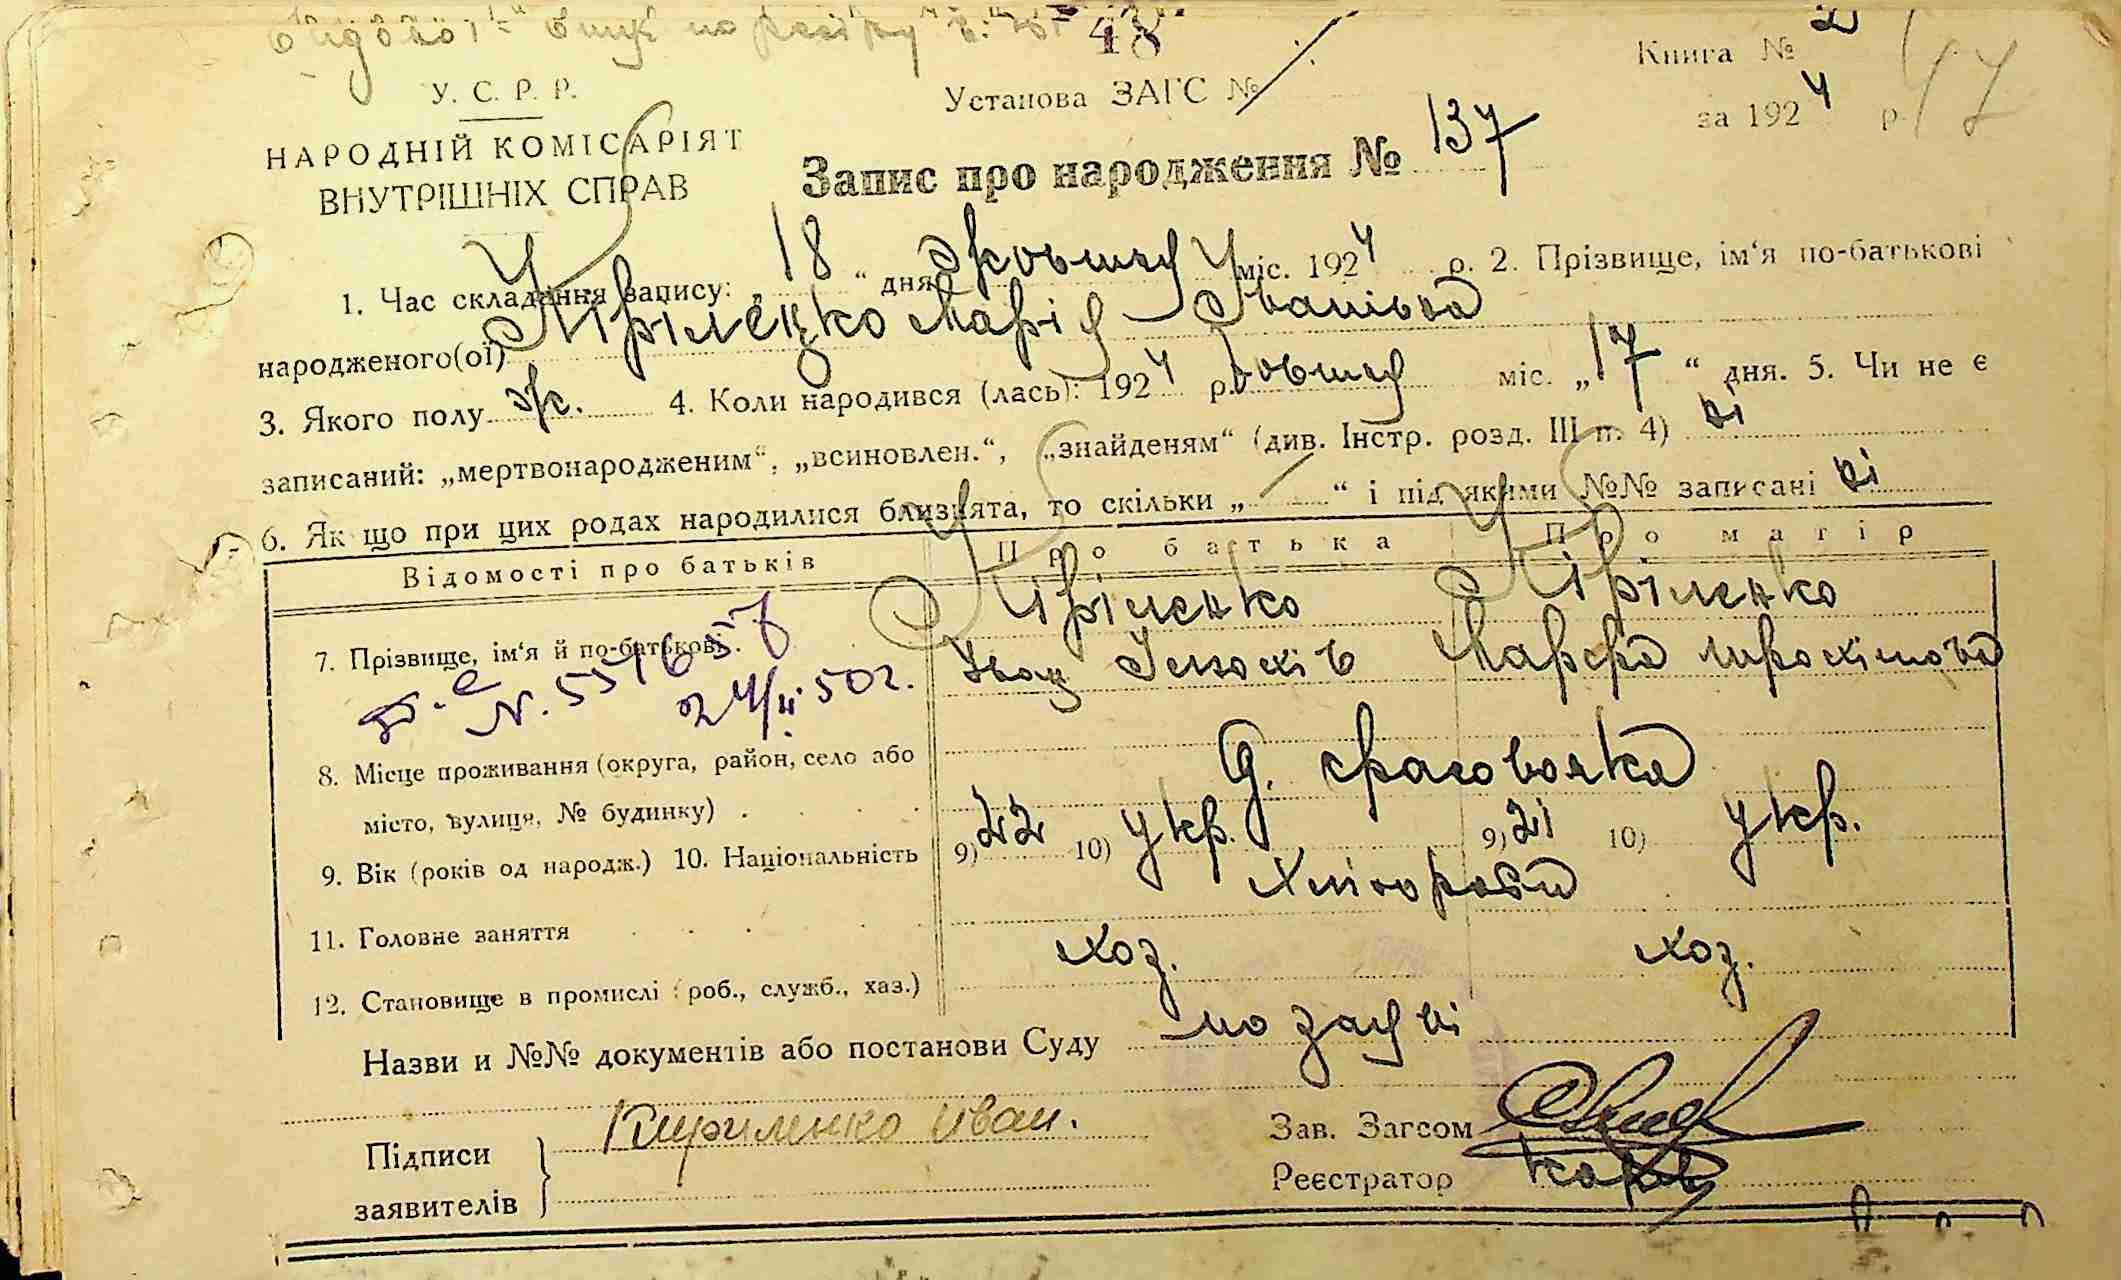 48
Книга № 2
47
У. С. Р. Р.
Установа ЗАГС №
за 1924 р.
НАРОДНІЙ КОМІСАРІЯТ
ВНУТРІШНІХ СПРАВ
Запис про народження № 137
1. Час складання запису: „ 18 “ дня Жовтня міс. 1924 р. 2. Прізвище, ім‘я по-батькові
народженого(ої) Кіріленко Марія Іванівна
3. Якого полу ж. 4. Коли народився (лась): 1924 р. Жовтня міс. „ 17 “ дня. 5. Чи не є
записаний: „мертвонародженим“, „всиновлен.“, „знайденям“ (див. Інстр. розд. III п. 4) ні
6. Як що при цих родах народилися близнята, то скільки „ “ і під якими №№ записані ні
Відомості про батьків Про батька Про матір
7. Прізвище, ім‘я й по-батькові. Кіріленко Кіріленко
Іван Марфа
24/II 50 г.
8. Місце проживання (округа, район, село або
місто, вулиця, № будинку)
9. Вік (років од народж.) 10. Національність 9) 22 10) укр. 9) 21 10) укр.
11. Головне заняття Хліборобы
12. Становище в промислі (роб., служб., хаз.) хоз. хоз.
Назви и №№ документів або постанови Суду по заяві
Підписи
заявителів
Кириленко Иван.
Зав. Загсом
Реєстратор